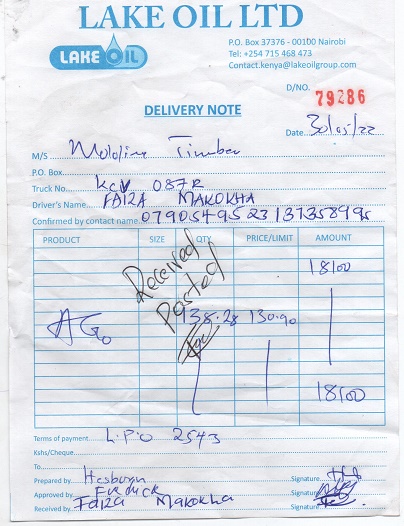 LAKE OIL LTD
LAKE OIL
P.O. Box 37376 - 00100 Nairobi
Tel: +254 715 468 473
Contact.kenya@lakeoilgroup.com
D/NO. 79286
DELIVERY NOTE
Date 30/05/22
M/S Mololine Timber
P.O. Box
Truck No. KCV 087R
Driver's Name FAIZA MAKOKHA
Confirmed by contact name.
PRODUCT SIZE QTY PRICE/LIMIT AMOUNT
Received
Posted
18100
AGO 138.28 130.90
18100
Terms of payment L.P.O 2543
Kshs/Cheque
To
Prepared by Signature
Approved by Signature
Received by Faiza Makokha Signature